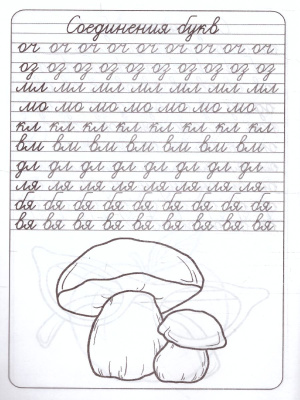 Соединения букв
оч оч оч оч оч оч оч оч оч
оз оз оз оз оз оз оз оз оз
мл мл мл мл мл мл мл
мо мо мо мо мо мо мо
кл кл кл кл кл кл кл кл
вм вм вм вм вм вм вм
дл дл дл дл дл дл дл дл
ля ля ля ля ля ля ля ля
бя бя бя бя бя бя бя бя бя
вя вя вя вя вя вя вя вя вя